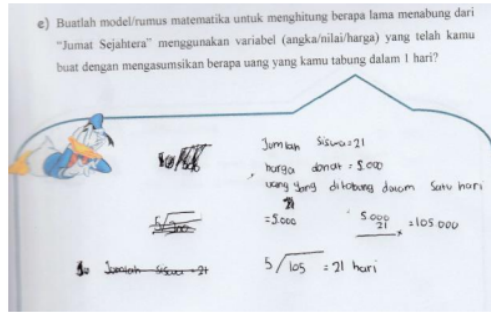 e) Buatlah model/rumus matematika untuk menghitung berapa lama menabung dari
"Jumat Sejahtera" menggunakan variabel (angka/nilai/harga) yang telah kamu
buat dengan mengasumsikan berapa uang yang kamu tabung dalam 1 hari?
Jumlah Siswa=21
harga donat = 5.000
uang yang ditabung dalam satu hari
=5.000
5.000
21 x
=105.000
Jumlah siswa = 21
5/105 = 21 hari